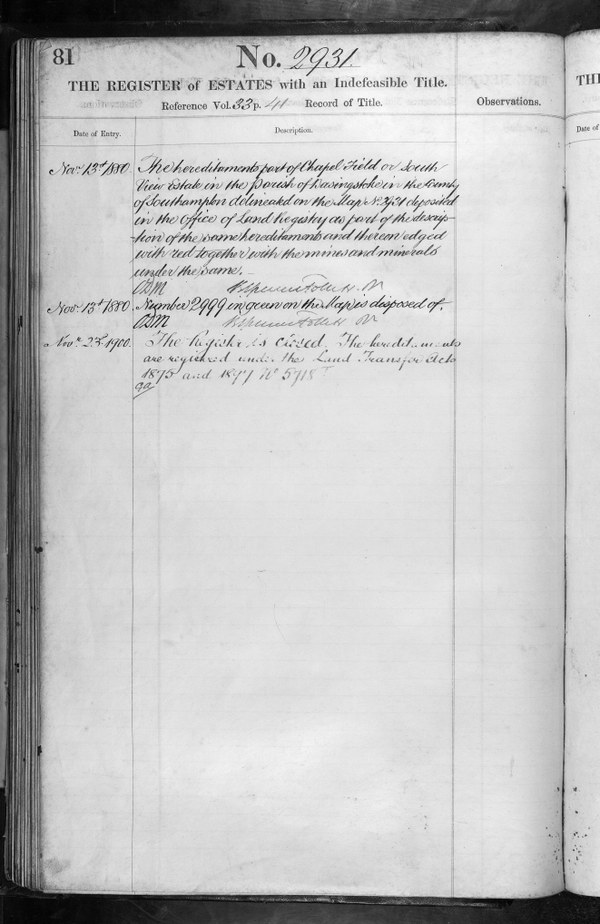 81
No. 2931.
THE REGISTER of ESTATES with an Indefeasible Title.
Reference Vol. 33 p. 41 Record of Title.
Observations.
Date of Entry.
Description.
Novr. 13th 1880. The hereditaments part of Chapel Field or South
View Estate in the parish of Basingstoke in the County
of Southampton delineated on the Map No. 2931 deposited
in the Office of Land Registry as part of the descrip-
-tion of the same hereditaments and thereon edged
with red together with the mines and minerals
under the same. -
Novr. 13th 1880. Number 2999 in green on the Map is disposed of.
Novr. 22d 1900. The Register is closed. The hereditaments
are registered under the Land Transfer Acts
1875 and 1897 No 5718
THE
Date of